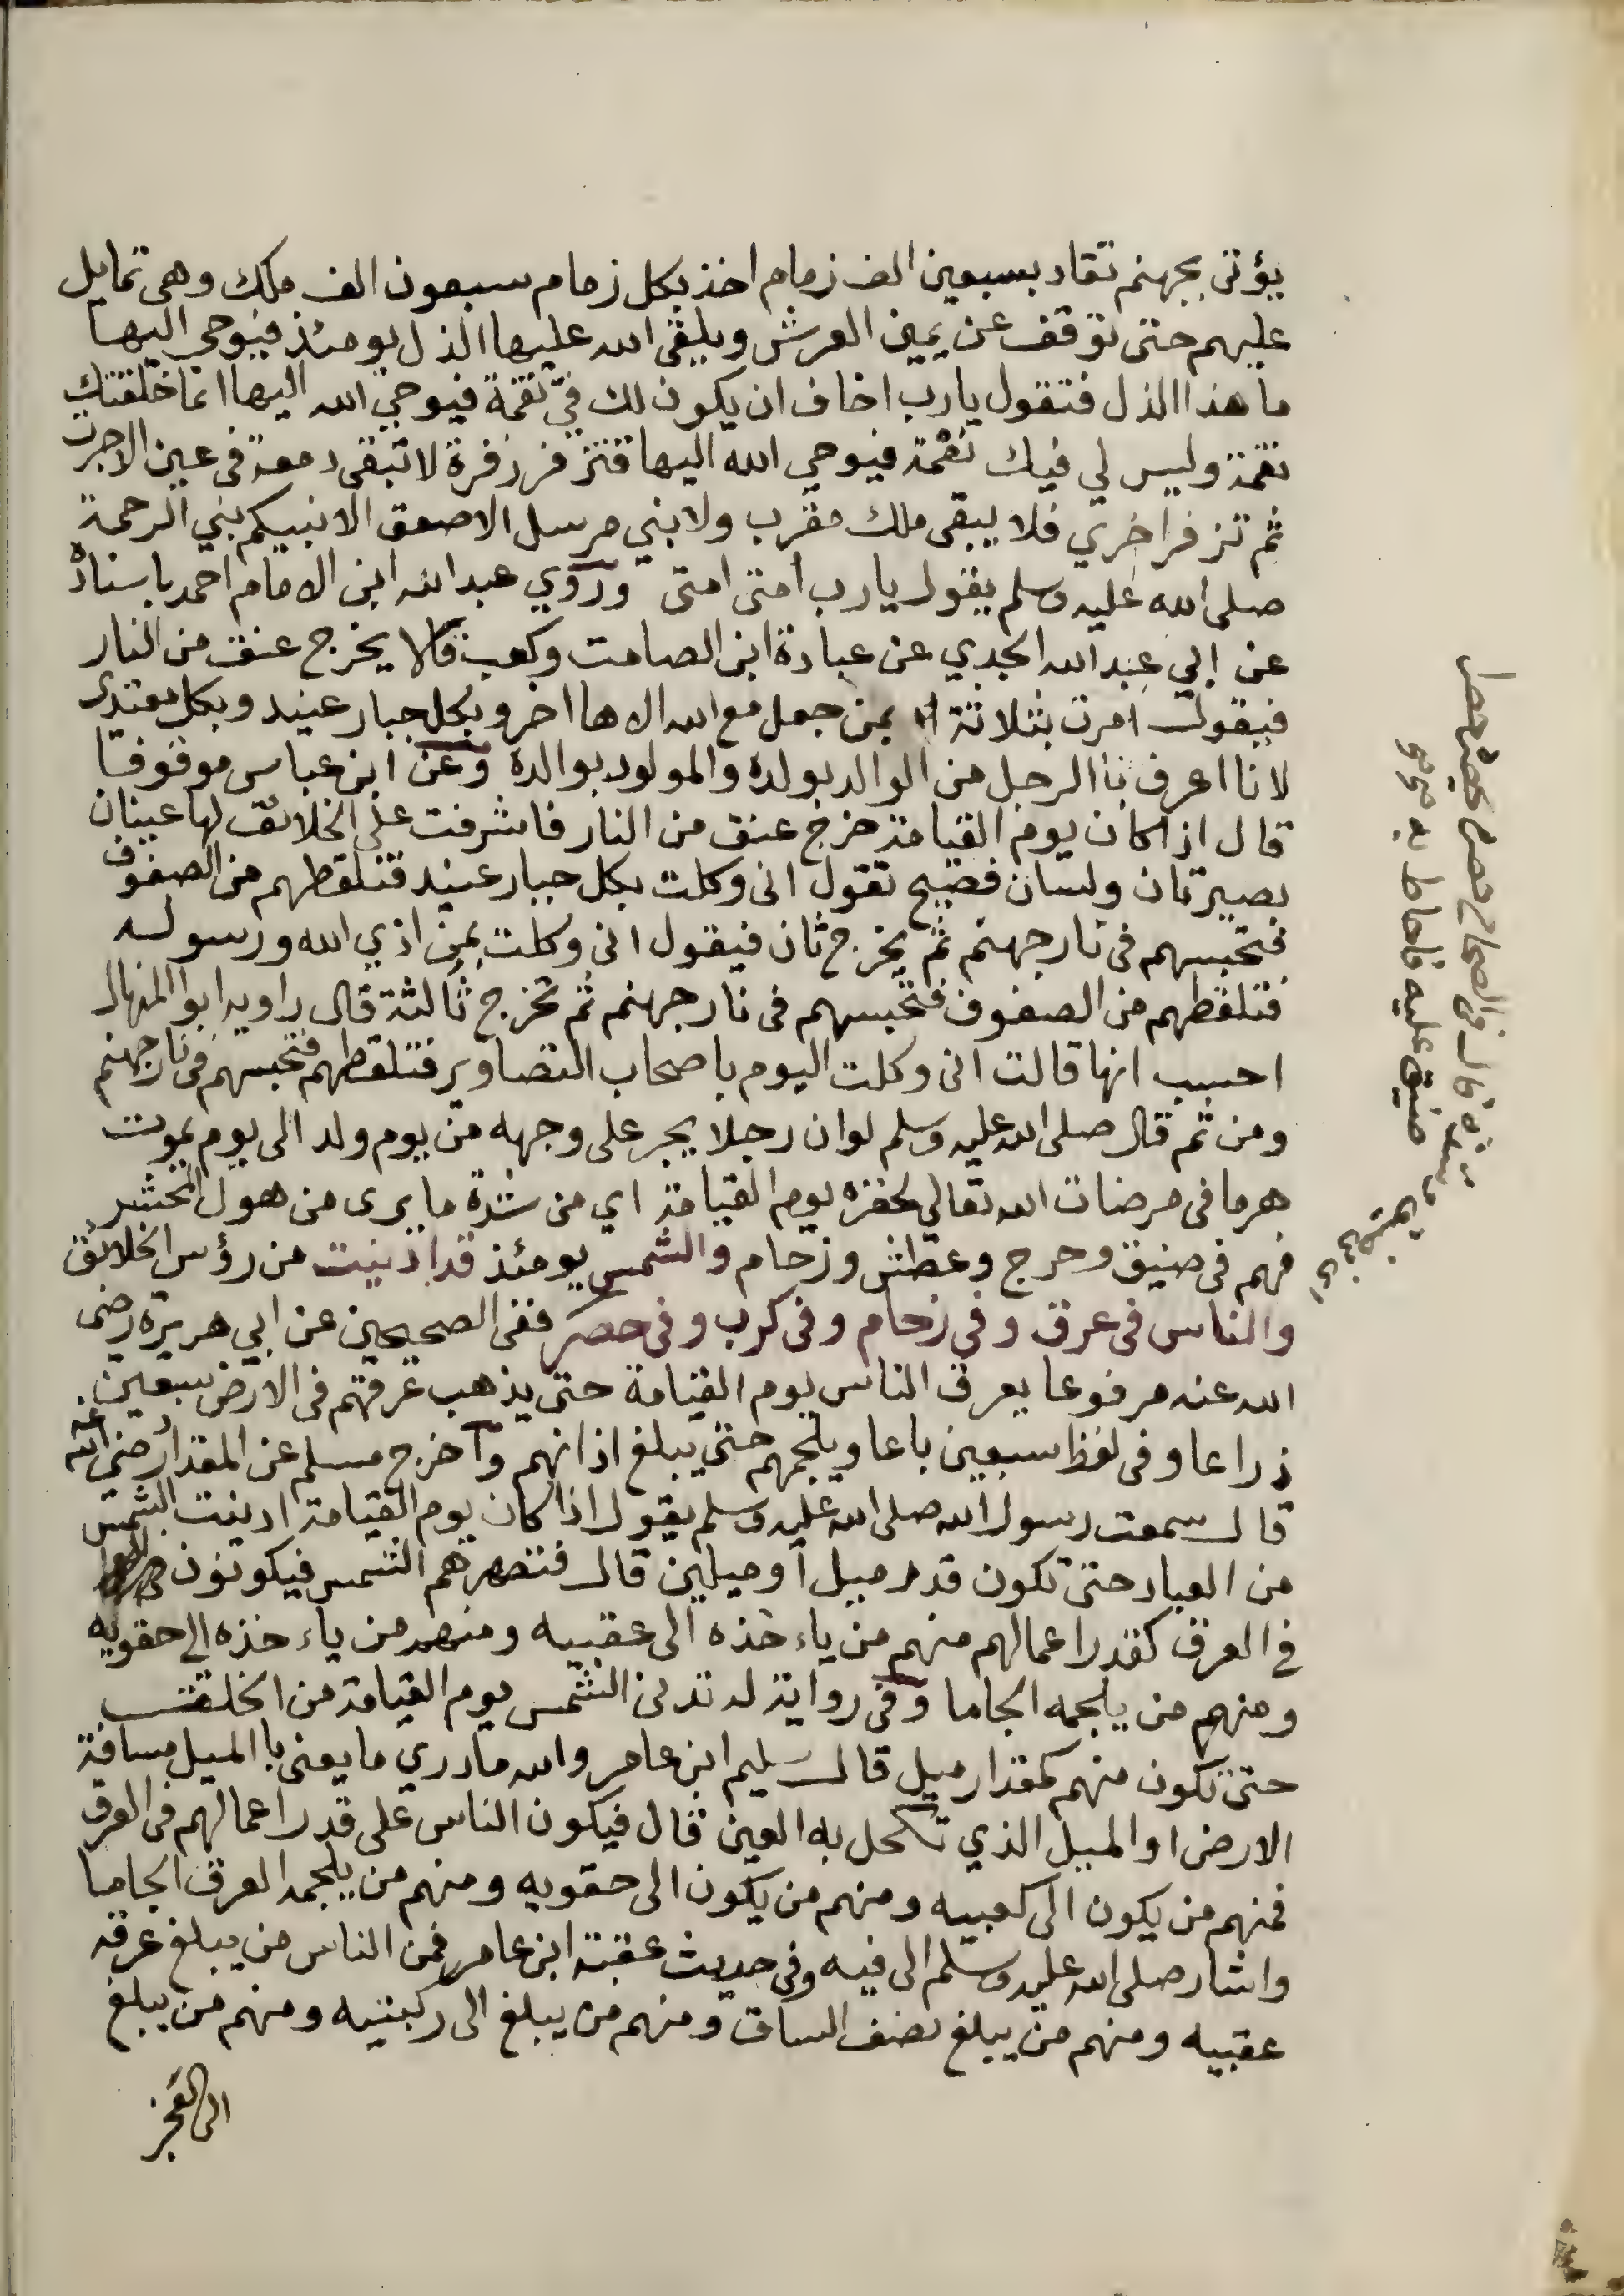 يؤتى بجهنم تقاد بسبعين الف زمام اخذ بكل زمام سبعون الف ملك وهى تمايل
عليهم حتى توقف عن يمين العرش ويلقى الله عليها الذل يومئذ فيوحي اليها
ما هذا الذل فتقول يا رب اخاف ان يكون لك فيّ نقمة فيوحي الله اليها انما خلقتك
نقمة وليس لي فيك نقمة فيوحي الله اليها فتزفر زفرة لا تبقى دمعة فى عين الاجرت
ثم تزفر اخري فلا يبقى ملك مقرب ولا نبي مرسل الاصعق الا نبيكم نبي الرحمة
صلى الله عليه وسلم يقول يا رب امتى امتى وروي عبد الله ابن الامام احمد باسناده
عن ابي عبد الله الجدي عن عبادة ابن الصامت وكعب قالا يخرج عنق من النار
فيقول امرت بثلاثة بمن جعل مع الله الاها اخر وبكل جبار عنيد وبكل معتدى
لانا اعرف باالرجل من الوالد بولده والمولود بوالده وعن ابن عباس موقوفا
قال اذا كان يوم القيامة خرج عنق من النار فاشرفت على الخلائق لها عينان
بصيرتان ولسان فصيح تقول انى وكلت بكل جبار عنيد فتلقطهم من الصفوف
فتحبسهم فى نار جهنم ثم يخرج ثان فيقول انى وكلت بمن اذي الله ورسوله
فتلقطهم من الصفوف فتحبسهم فى نار جهنم ثم تخرج ثالثة قال راويه ابوا المنهال
احسب انها قالت انى وكلت اليوم باصحاب التصاوير فتلقطهم فتحبسهم فى نار جهنم
ومن ثم قال صلى الله عليه وسلم لوان رجلا يجر على وجهه من يوم ولد الى يوم يموت
هرما فى مرضات الله تعالي لحقره يوم القيامة اي من شدة ما يرى من هول المحشر
فهم فى ضيق وحرج وعطش وزحام والشمس يومئذ قد ادنيت من رؤس الخلائق
والناس فى عرق وفي زحام وفى كرب وفى حصر ففى الصحيحين عن ابي هريرة رضى
الله عنه مرفوعا يعرق الناس يوم القيامة حتى يذهب عرقهم فى الارض سبعين
ذراعا وفى لفظ سبعين باعا ويلجمهم حتى يبلغ اذانهم واخرج مسلم عن المقداد رضي الله عنه
قال سمعت رسول الله صلى الله عليه وسلم يقول اذا كان يوم القيامة ادنيت الشمس
من العباد حتى تكون قدر ميل او ميلين قال فتصهرهم الشمس فيكونون
في العرق كقدر اعمالهم منهم من ياءخذه الى عقبيه ومنهم من ياءخذه الى حقويه
ومنهم من يلجمه الجاما وفى رواية له تدنى الشمس يوم القيامة من الخلق
حتى تكون منهم كمقدار ميل قال سليم ابن عامر والله ما درري ما يعنى باالميل مسافة
الارض او الميل الذي تكحل به العين قال فيكون الناس على قدر اعمالهم فى العرق
فمنهم من يكون الى كعبيه ومنهم من يكون الى حقويه ومنهم من يلجمه العرق الجاما
واشار صلى الله عليه وسلم الى فيه وفى حديث عقبة ابن عامر فمن الناس من يبلغ عرقه
عقبيه ومنهم من يبلغ نصف الساق ومنهم من يبلغ الى ركبتيه ومنهم من يبلغ
الى الفخز
قال فى الصحاح
ضيق عليه فاحاط به